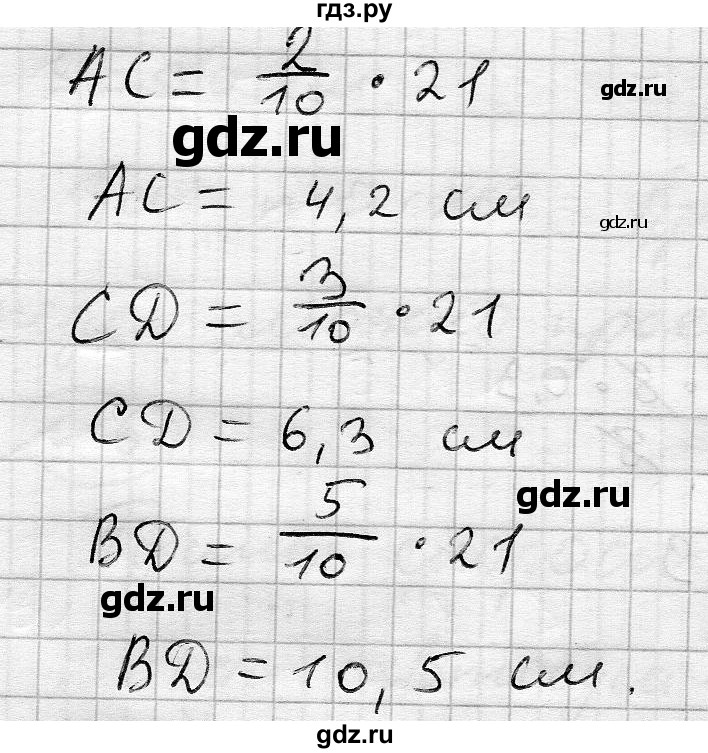 гдз.ру
AC = 2/10 · 21
gdz.ru
gdz.ru
AC = 4,2 см
gdz.ru
CD = 3/10 · 21
CD = 6,3 см
gdz.ru
BD = 5/10 · 21
gdz.ru
BD = 10,5 см.
gdz.ru